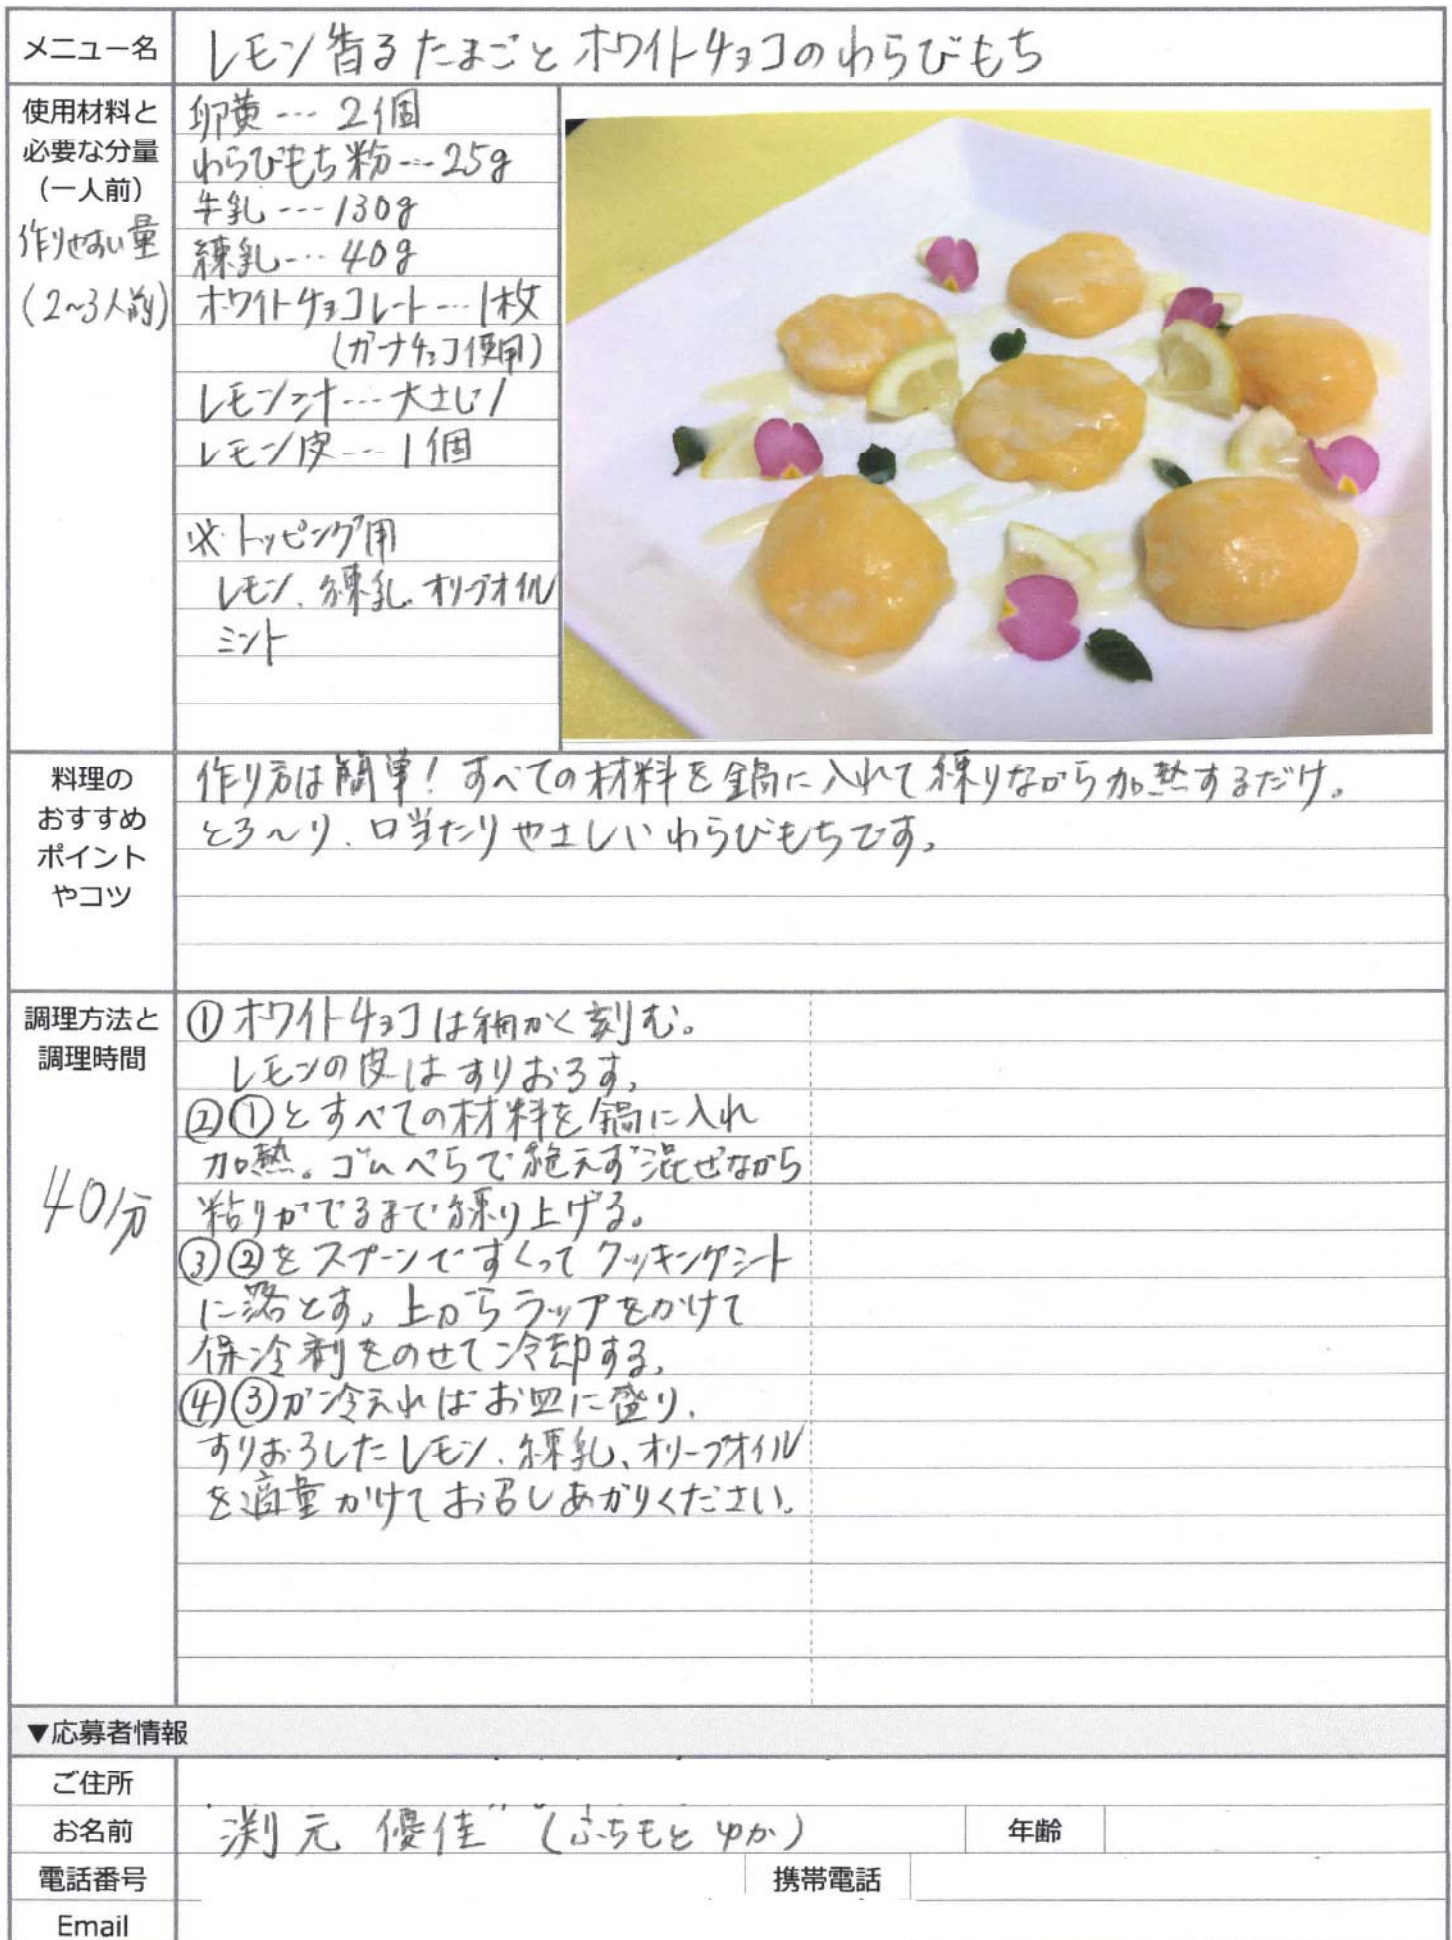 メニュー名
レモン香るたまごとホワイトチョコのわらびもち
使用材料と
必要な分量
（一人前）
作りやすい量
(2~3人前)
卵黄---2個
わらびもち粉---25g
牛乳---130g
練乳---40g
ホワイトチョコレート---1枚
(ガーナチョコ使用)
レモン汁---大さじ1
レモン皮---1個
※トッピング用
レモン、練乳、オリーブオイル
ミント
料理の
おすすめ
ポイント
やコツ
作り方は簡単！すべての材料を鍋に入れて練りながら加熱するだけ。
とろ〜り、口当たりやさしいわらびもちです。
調理方法と
調理時間
40分
①ホワイトチョコは細かく刻む。
レモンの皮はすりおろす。
②①とすべての材料を鍋に入れ
加熱。ゴムべらで絶えず混ぜながら
粘りがでるまで練り上げる。
③②をスプーンですくってクッキングシート
に落とす。上からラップをかけて
保冷剤をのせて冷却する。
④③が冷えればお皿に盛り、
すりおろしたレモン、練乳、オリーブオイル
を適量かけてお召しあがりください。
▼応募者情報
ご住所
お名前
渕元 優佳 (ふちもと ゆか)
年齢
電話番号
携帯電話
Email